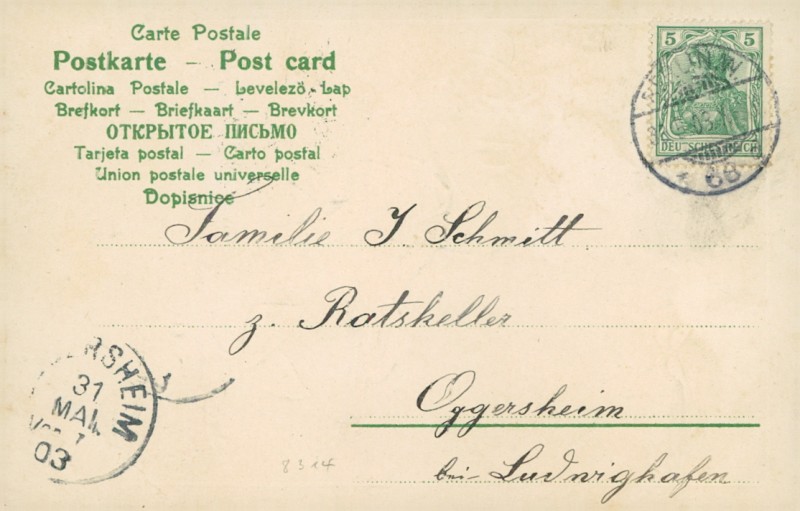 Carte Postale
Postkarte – Post card
Cartolina Postale — Levelezö-Lap
Brefkort — Briefkaart — Brevkort
ОТКРЫТОЕ ПИСЬМО
Tarjeta postal — Carto postal
Union postale universelle
Dopisnice
5 5
DEUTSCHES REICH
W
68
Familie J. Schmitt
z. Ratskeller
Oggersheim
bei Ludwighafen
ERSHEIM
31
MAI
03
8314